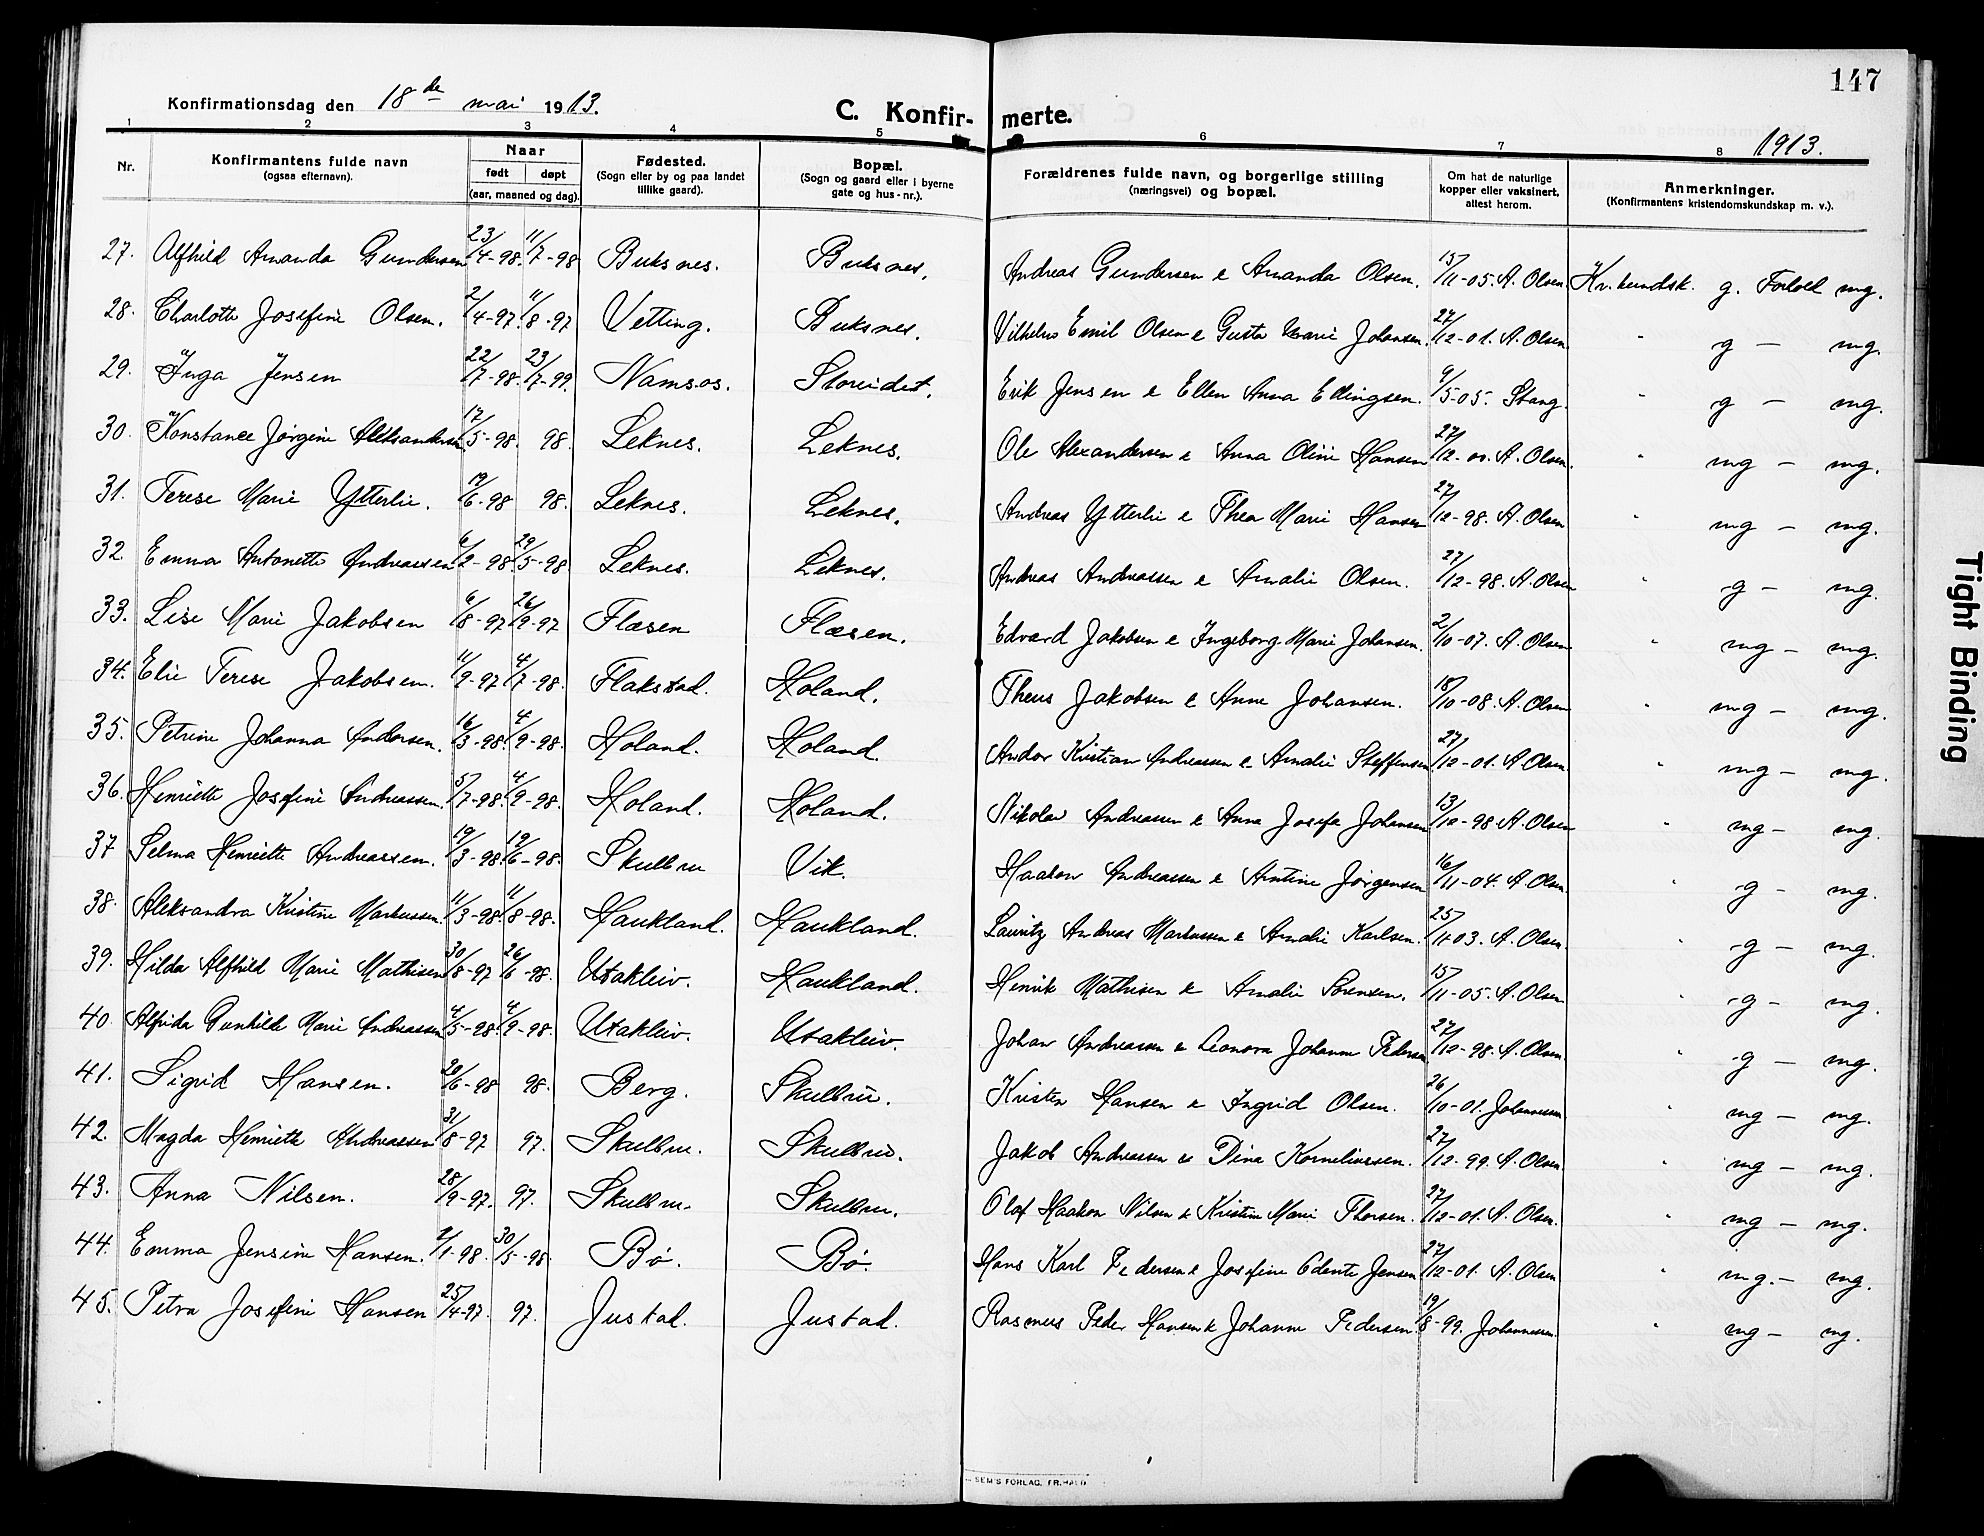 147
Konfirmationsdag den 18de mai 1913.
C. Konfir- merte.
1913.
1 2 3 4 5 6 7 8
Nr.
Konfirmantens fulde navn
(ogsaa efternavn).
Naar
født døpt
(aar, maaned og dag).
Fødested.
(Sogn eller by og paa landet
tillike gaard).
Bopæl.
(Sogn og gaard eller i byerne
gate og hus-nr.).
Forældrenes fulde navn, og borgerlige stilling
(næringsvei) og bopæl.
Om hat de naturlige
kopper eller vaksinert,
attest herom.
Anmerkninger.
(Konfirmantens kristendomskundskap m. v.).
27. Alfhild Amanda Gundersen 23/4-98. 11/7-98 Buksnes. Buksnes. Andreas Gundersen & Amanda Olsen. 15/11-05. A. Olsen Kr. kundsk. g. Forhol mg.
28. Charlotte Josefine Olsen. 2/4-97. 11/8-97 Vetting. Buksnes. Vilhelm Emil Olsen & Gusta Marie Johansen. 27/12-01. A. Olsen " g — mg.
29. Inga Jensen 22/7-98. 23/7-99. Namsos. Storeidet. Erik Jensen & Ellen Anna Ellingsen. 9/5-05. Stang. " g — mg.
30. Konstance Jørgine Aleksandersen 17/5-98. 98. Leknes. Leknes. Ole Alexandersen & Anna Oline Hansen 27/12-00. A. Olsen. " mg — mg.
31. Terese Marie Ytterlie. 19/6-98 98. Leknes. Leknes. Andreas Ytterlie & Thea Marie Hansen 27/12-98. A. Olsen " mg — mg.
32. Emma Antonette Andreassen 6/2-98. 29/5-98. Leknes. Leknes. Andreas Andreassen & Amalie Olsen. 27/12-98. A. Olsen " g — mg.
33. Lise Marie Jakobsen 6/8-97 26/9-97 Flæsen Flæsen. Edvard Jakobsen & Ingeborg Marie Johansen. 2/10-07. A. Olsen " mg — mg.
34. Elie Terese Jakobsen. 11/9-97 4/7-98. Flakstad. Holand. Theus Jakobsen & Anne Johansen. 18/10-08. A. Olsen " mg — mg.
35. Petrine Johanna Andersen. 16/3-98. 4/9-98. Holand. Holand. Andor Kristian Andreassen & Amalie Steffensen 27/12-01. A. Olsen. " mg — mg.
36. Henriette Josefine Andreassen. 5/7-98. 4/9-98. Holand. Holand. Nikolai Andreassen & Anna Josefa Johansen 13/12-98 A. Olsen " mg — mg.
37 Selma Henriette Andreassen. 19/3-98. 19/6-98. Skulbru Vik. Haakon Andreassen & Antine Jørgensen 16/11-04. A. Olsen " g — mg.
38. Aleksandra Kristine Markussen. 11/3-98. 11/8-98. Haukland. Haukland. Lauritz Andreas Markussen & Amalie Karlsen. 25/11-03. A. Olsen. " g — mg.
39. Hilda Alfhild Marie Mathisen 30/8-97 26/6-98. Utakleiv. Haukland. Henrik Mathisen & Amalie Sørensen. 15/11-05. A. Olsen " g — mg.
40. Alfrida Gunhilde Marie Andreassen 4/5-98. 4/9-98. Utakleiv. Utakleiv. Johan Andreassen & Leonora Johanne Pedersen 27/12-98. A. Olsen. " g — mg.
41. Sigrid Hansen. 20/6-98 98. Berg. Skulbru. Kristen Hansen & Ingrid Olsen. 26/10-01. Johannessen " mg — mg.
42. Magda Henriette Andreassen 31/8-97 97. Skulbru. Skulbru. Jakob Andreassen & Dina Korneliussen. 27/12-99. A. Olsen " mg — mg.
43. Anna Nilsen. 28/9-97. 97. Skulbru. Skulbru. Olaf Haakon Nilsen & Kristine Marie Thorsen. 27/12-01. A. Olsen. " mg — mg.
44. Emma Jensine Hansen. 2/1-98. 30/5-98. Bø. Bø. Hans Karl Pedersen & Josefine Odente Jensen 27/12-01. A. Olsen " mg. — mg.
45. Petra Josefine Hansen 25/4-97. 97. Justad. Justad. Rasmus Peder Hansen & Johanne Pedersen. 19/8-99. Johannessen. " mg — mg.
SEM'S FORLAG. FR.HALD
Tight Binding